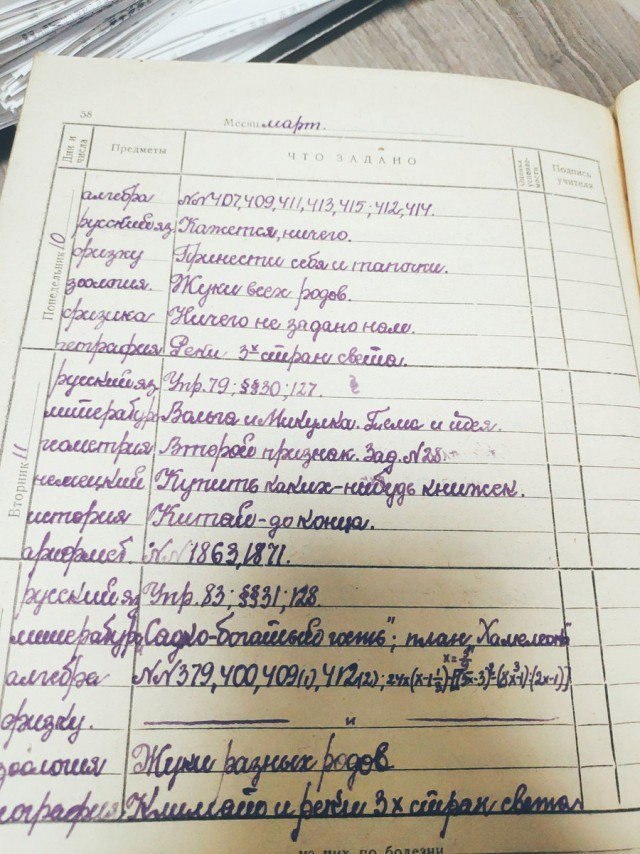 58
Месяц март.
Дни и числа Предметы ЧТО ЗАДАНО Оценка успеваемости Подпись учителя
Понедельник 10
алгебра №№407,409,411,413,415;412,414.
русский яз Кажется, ничего.
физ-ку Принести себя и тапочки.
зоология. Жуки всех родов.
физика Ничего не задано нам.
география Реки 3х стран света.
Вторник 11
русский яз Упр. 79; §§30; 127.
литература Вольга и Микулка. Тема и идея.
геометрия Второй признак. Зад. №28
немецкий Купить каких-нибудь книжек.
история Китай-до конца.
арифмет. №№1863,1871.
русский яз Упр. 83; §§31; 128.
литература „Садко-богатый гость"; план „Хамелеон"
алгебра №№379,400,409(1),412(2);
физ-ку. и
зоология Жуки разных родов
география Климат и реки 3х стран света
из них по болезни